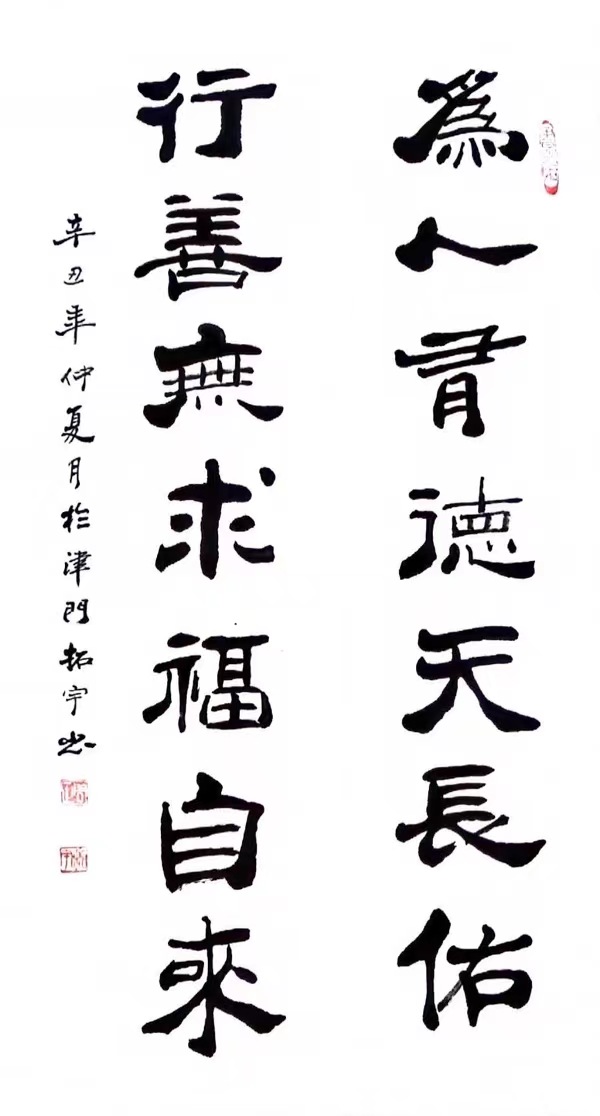 為人有德天長佑
行善無求福自來
辛丑年仲夏月於津門拓宇书